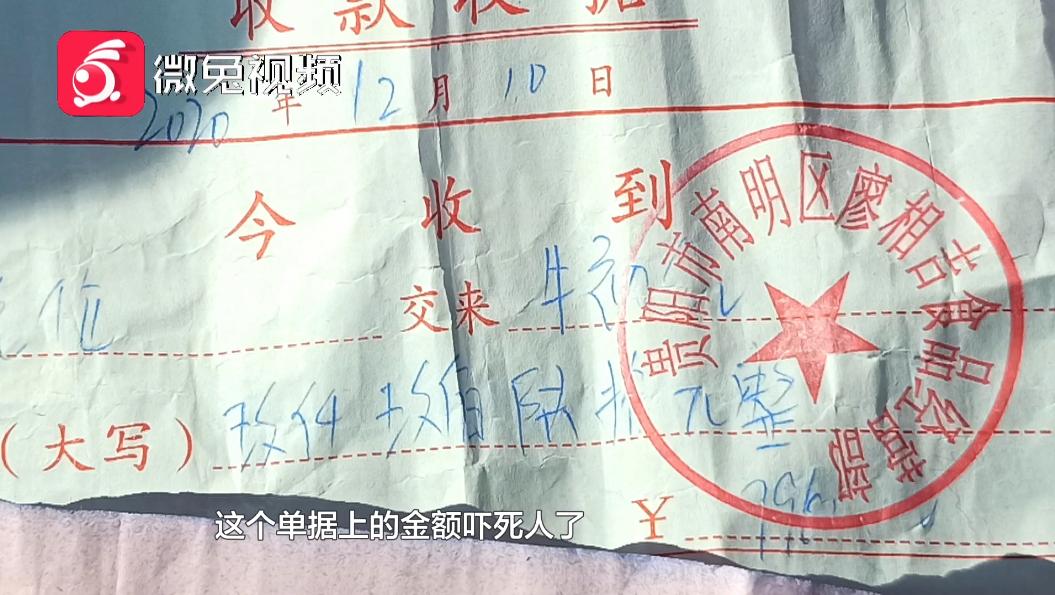 收款收据
微兔视频
2020 年 12 月 10 日
今收到
位 交来
(大写) 玖仟玖佰陆拾元整
¥
贵阳市南明区廖相吉食品经营部
这个单据上的金额吓死人了